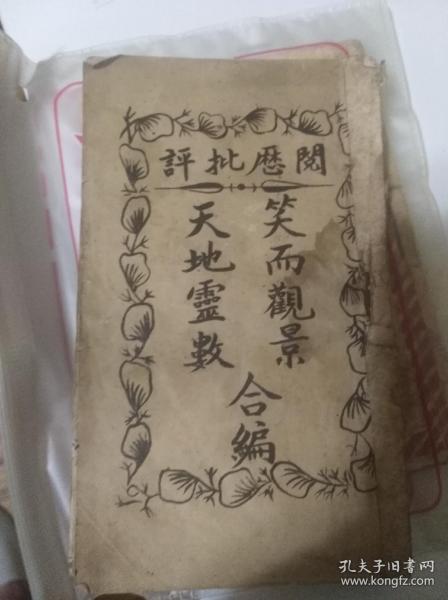 閱歷批評
笑而觀景
天地靈數
合編
孔夫子旧书网
www.kongfz.com